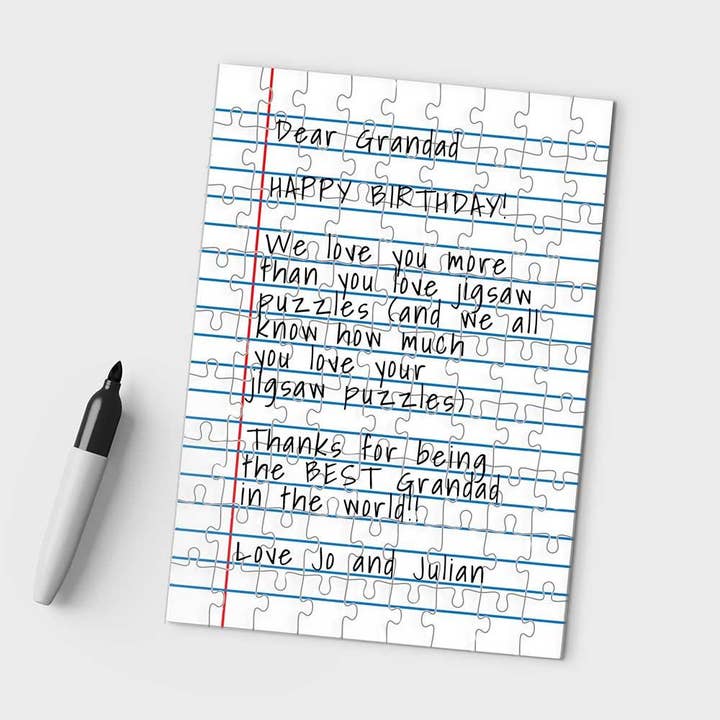 Dear Grandad
HAPPY BIRTHDAY!
We love you more
than you love jigsaw
puzzles (and we all
know how much
you love your
jigsaw puzzles)
Thanks for being
the BEST Grandad
in the world!!
Love Jo and Julian